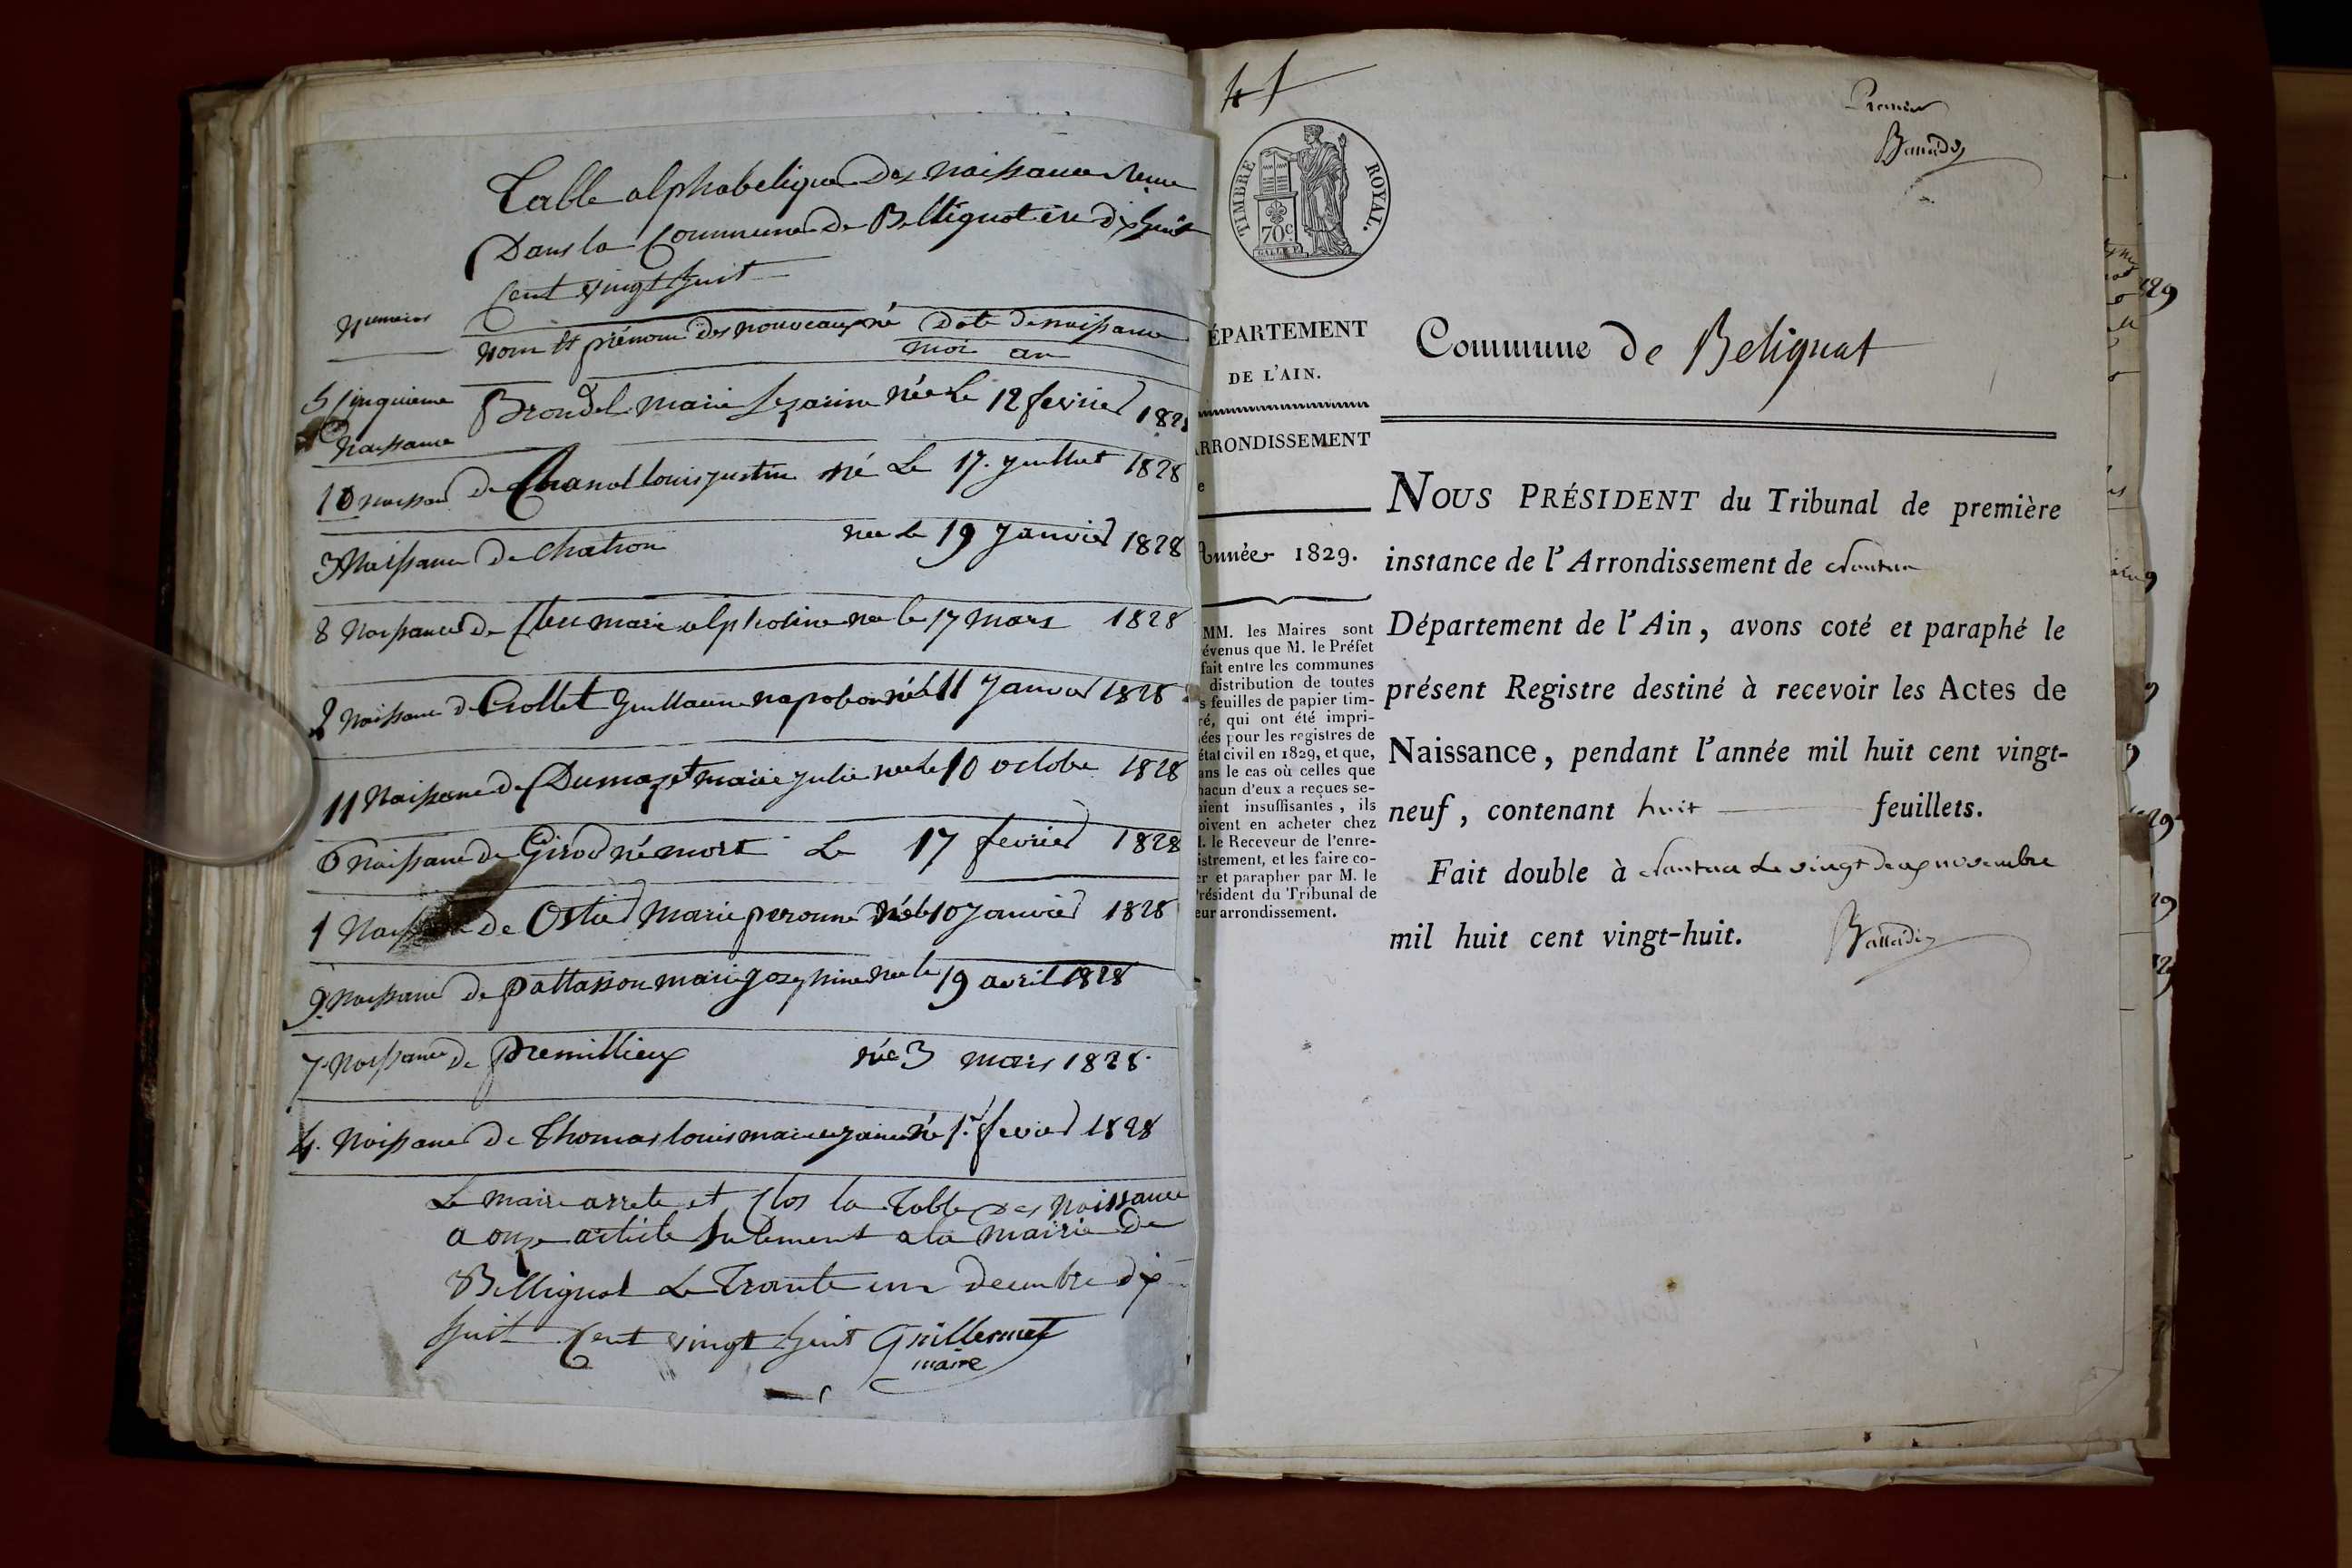 Table alphabetique des naissance
Dans la Commune de Bellignat ere dix huit
Cent vingt huit
Numeros
Nom et prénom des nouveaux né Date de naissance
moi an
5 Cinquieme Brondel marie Cezarine née Le 12 fevrier 182
Naissance
10 naissance de Chanal louis justin né Le 17. juillet 1828
3 Naissance de Chatron née le 19 Janvier 1828
8 Naissance de marie alphosine née le 17 mars 1828
2 Naissance de Crollet Guillaume napoleon né le 11 Janvier 1828
11 Naissance de Dumazet marie julie née le 10 octobre 1828
6 Naissance de Girod né mort Le 17 fevrier 1828
1 Naissance de marie peronne née le 10 Janvier 1828
9. Naissance de pattasson marie Josephine née le 19 avril 1828
7 Naissance de premillieux née 3 mars 1828.
4. Naissance de Thomas louis marie né 1er fevrier 1828
Le maire arrete et Clos la Table des Naissance
a onze article sulement a la mairie De
Bellignat Le Trante un decembre dix
huit Cent vingt huit Guillermet
maire
Premier
TIMBRE ROYAL.
70c
ÉPARTEMENT
DE L'AIN.
RRONDISSEMENT
e
Année 1829.
MM. les Maires sont
évenus que M. le Préfet
fait entre les communes
distribution de toutes
s feuilles de papier tim-
ré, qui ont été impri-
ées pour les registres de
état civil en 1829, et que,
ans le cas où celles que
hacun d'eux a reçues se-
aient insuffisantes, ils
oivent en acheter chez
I. le Receveur de l'enre-
istrement, et les faire co-
er et parapher par M. le
Président du Tribunal de
eur arrondissement.
Commune de Belignat
NOUS PRÉSIDENT du Tribunal de première
instance de l'Arrondissement de Nantua
Département de l'Ain, avons coté et paraphé le
présent Registre destiné à recevoir les Actes de
Naissance, pendant l'année mil huit cent vingt-
neuf, contenant huit feuillets.
Fait double à Nantua Le vingt deux novembre
mil huit cent vingt-huit.